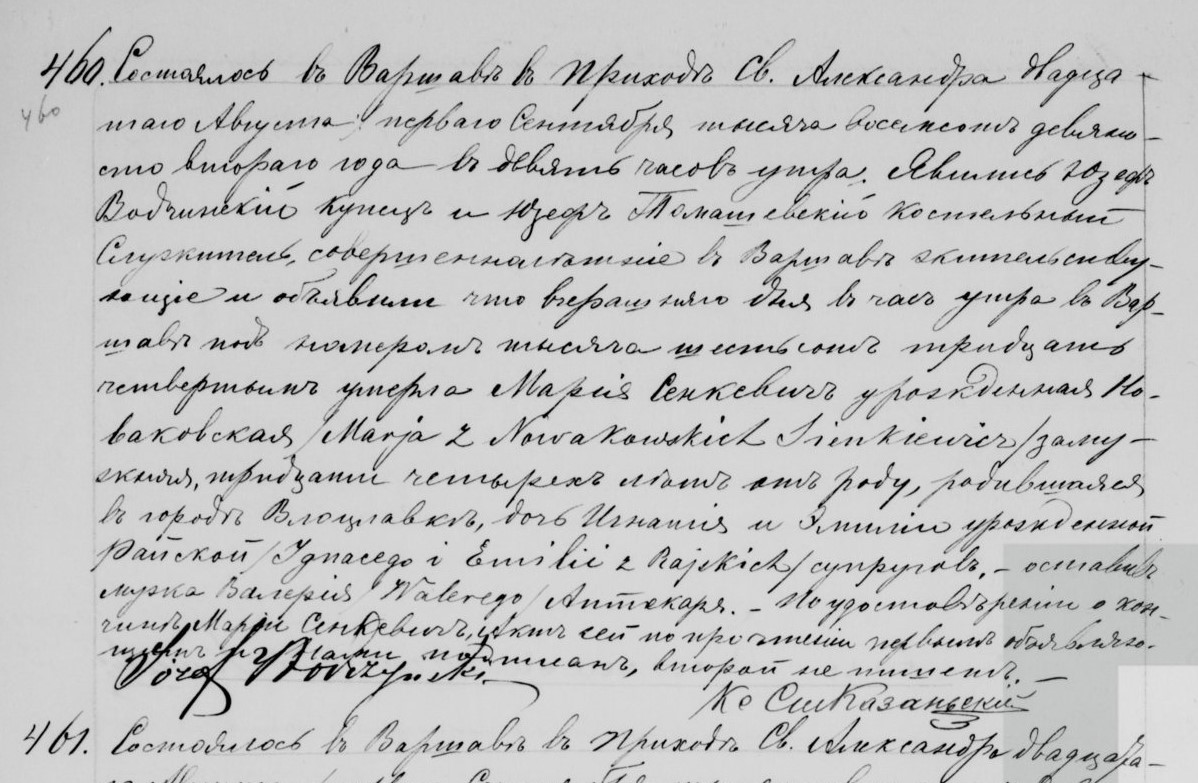 460. Состоялось въ Варшавѣ въ приходѣ Св. Александра двадца-
460
таго Августа / перваго Сентября тысяча восемсотъ девяно-
сто втораго года въ девять часовъ утра. Явились Юзефъ
Водчинскій купецъ и Юзефъ Томашевскій костельный
служитель, совершеннолѣтніе въ Варшавѣ жительству-
ющіе и объявили что вчерашняго дня въ часъ утра въ Вар-
шавѣ подъ номеромъ тысяча шестьсотъ тридцать
четвертымъ умерла Марія Сенкевичъ урожденная Но-
ваковская /Marja z Nowakowskich Sienkiewicz/ заму-
жняя, тридцати четырехъ лѣтъ отъ роду, родившаяся
въ городѣ Влоцлавкѣ, дочь Игнатія и Эмиліи урожденной
Райской /Ignacego i Emilii z Rajskich/ супруговъ. – оставивъ
мужа Валерія /Walerego/ Аптекаря. – По удостовѣреніи о кон-
чинѣ Маріи Сенкевичъ, Актъ сей по прочтеніи первымъ объявляю-
щимъ и Нами подписанъ, второй не пишетъ. –
Józef Wodczyński
Кс
461. Состоялось въ Варшавѣ въ приходѣ Св. Александра двадцата-